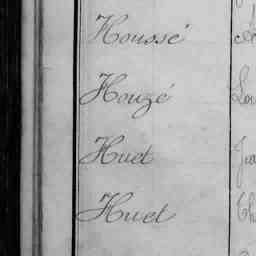 Houssé
Houzé
Huet
Huet